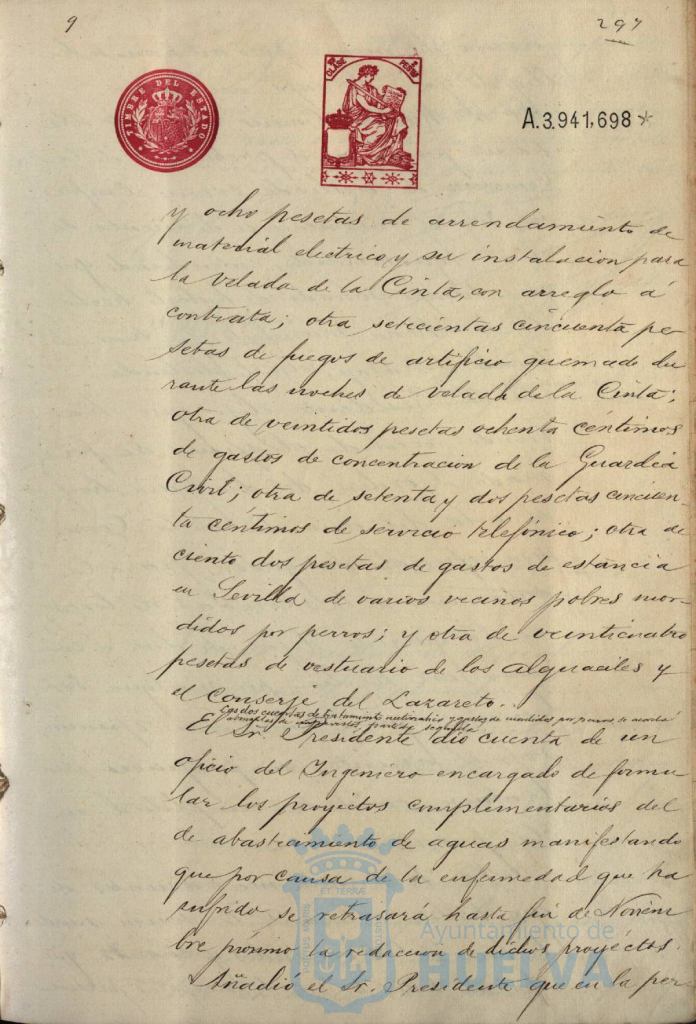 9
297
TIMBRE DEL ESTADO
CLASE
PESETA
A.3.941,698*
y ocho pesetas de arrendamiento de
material electrico y su instalacion para
la velada de la Cinta, con arreglo á
contrata; otra setecientas cincuenta pe
setas de fuegos de artificio quemado du
rante las noches de velada de la Cinta;
otra de veintidos pesetas ochenta céntimos
de gastos de concentracion de la Guardia
Civil; otra de setenta y dos pesetas cincuen-
ta céntimos de servicio telefónico; otra de
ciento dos pesetas de gastos de estancia
en Sevilla de varios vecinos pobres mor-
didos por perros; y otra de veinticuatro
pesetas de vestuario de los alguaciles y
el Conserje del Lazareto.
Las dos cuentas de tratamiento y gastos de mordidos por perros se acordó
El Sr. Presidente dió cuenta de un
oficio del Ingeniero encargado de formu
lar los proyectos complimentarios del
de abastecimiento de aguas manifestando
que por causa de la enfermedad que ha
sufrido, se retrasará hasta fin de Noviem
bre próximo la redaccion de dichos proyectos.
Añadió el Sr. Presidente que en la per-
Ayuntamiento de
HUELVA